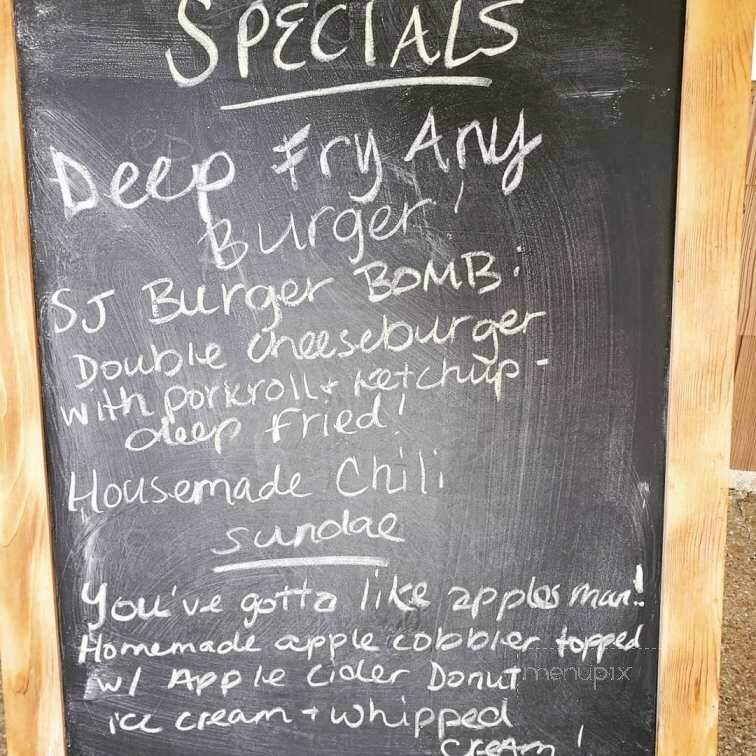 SPECIALS
Deep Fry Any
Burger!
SJ Burger BOMB:
Double Cheeseburger
with porkroll + ketchup -
deep fried!
Housemade Chili
Sundae
You've gotta like apples man!!
Homemade apple cobbler topped
w/ Apple Cider Donut
ice cream + whipped
cream!
menupix